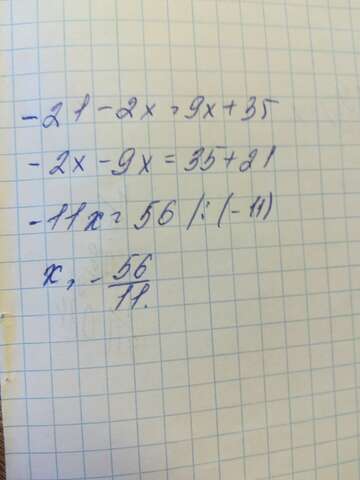 -21-2x=9x+35
-2x-9x=35+21
-11x=56 /:(-11)
x=-56/11.